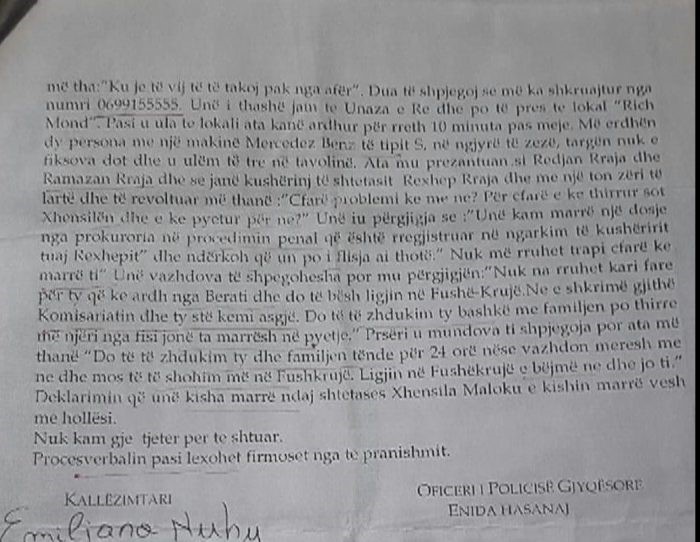 më tha:"Ku je të vij të të takoj pak nga afër". Dua të shpjegoj se më ka shkruajtur nga
numri 0699155555. Unë i thashë jam te Unaza e Re dhe po të pres te lokal "Rich
Mond". Pasi u ula te lokali ata kanë ardhur për rreth 10 minuta pas meje. Më erdhën
dy persona me një makinë Mercedez Benz të tipit S, në ngjyrë të zezë, targën nuk e
fiksova dot dhe u ulëm të tre në tavolinë. Ata mu prezantuan si Redjan Rraja dhe
Ramazan Rraja dhe se janë kushërinj të shtetasit Rexhep Rraja dhe me një ton zëri të
lartë dhe të revoltuar më thanë :"Cfarë problemi ke me ne? Për cfarë e ke thirrur sot
Xhensilën dhe e ke pyetur për ne?" Unë iu përgjigja se :"Unë kam marrë një dosje
nga prokuroria në procedimin penal që është rregjistruar në ngarkim të kushëririt
tuaj Rexhepit" dhe ndërkoh që un po i flisja ai thotë:" Nuk më rruhet trapi cfarë ke
marrë ti" Unë vazhdova të shpegohesha por mu përgjigjën:"Nuk na rruhet kari fare
për ty që ke ardh nga Berati dhe do të bësh ligjin në Fushë-Krujë.Ne e shkrimë gjithë
Komisariatin dhe ty stë kemi asgjë. Do të të zhdukim ty bashkë me familjen po thirre
më njëri nga fisi jonë ta marrësh në pyetje." Prsëri u mundova ti shpjegoja por ata më
thanë "Do të të zhdukim ty dhe familjen tënde për 24 orë nëse vazhdon meresh me
ne dhe mos të të shohim më në Fushkrujë. Ligjin në Fushëkrujë e bëjmë ne dhe jo ti."
Deklarimin që unë kisha marrë ndaj shtetases Xhensila Maloku e kishin marrë vesh
me hollësi.
Nuk kam gje tjeter per te shtuar.
Procesverbalin pasi lexohet firmoset nga te pranishmit.
KALLËZIMTARI
OFICERI I POLICISË GJYQËSORE
ENIDA HASANAJ
Emiliano Nuhu